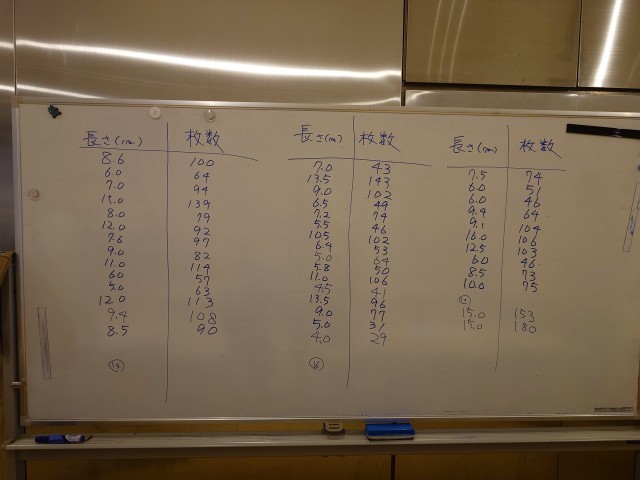 長さ(cm) 枚数
8.6 100
6.0 64
7.0 94
15.0 139
8.0 79
12.0 92
7.6 97
9.0 82
11.0 114
6.0 57
5.0 63
12.0 113
9.4 108
8.5 90
⑭
長さ(cm) 枚数
7.0 43
13.5 143
9.0 102
6.5 49
7.2 74
5.5 46
10.5 102
6.4 53
5.0 64
5.8 50
11.0 106
4.5 41
13.5 96
9.0 77
5.0 31
4.0 29
⑯
長さ(cm) 枚数
7.5 74
6.0 51
6.0 46
9.4 64
9.1 104
16.0 106
12.5 103
6.0 46
8.5 73
10.0 75
15.0 153
15.0 180